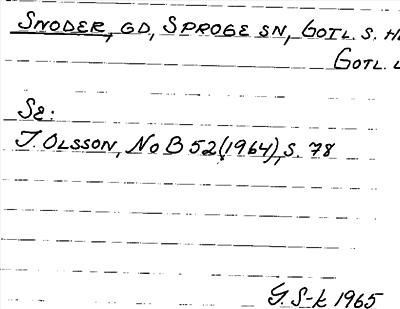 SNODER, GD, SPROGE SN, GOTL. S. H
GOTL. L
SE:
I. OLSSON, NOB 52 (1964), S. 78
G. S-k 1965